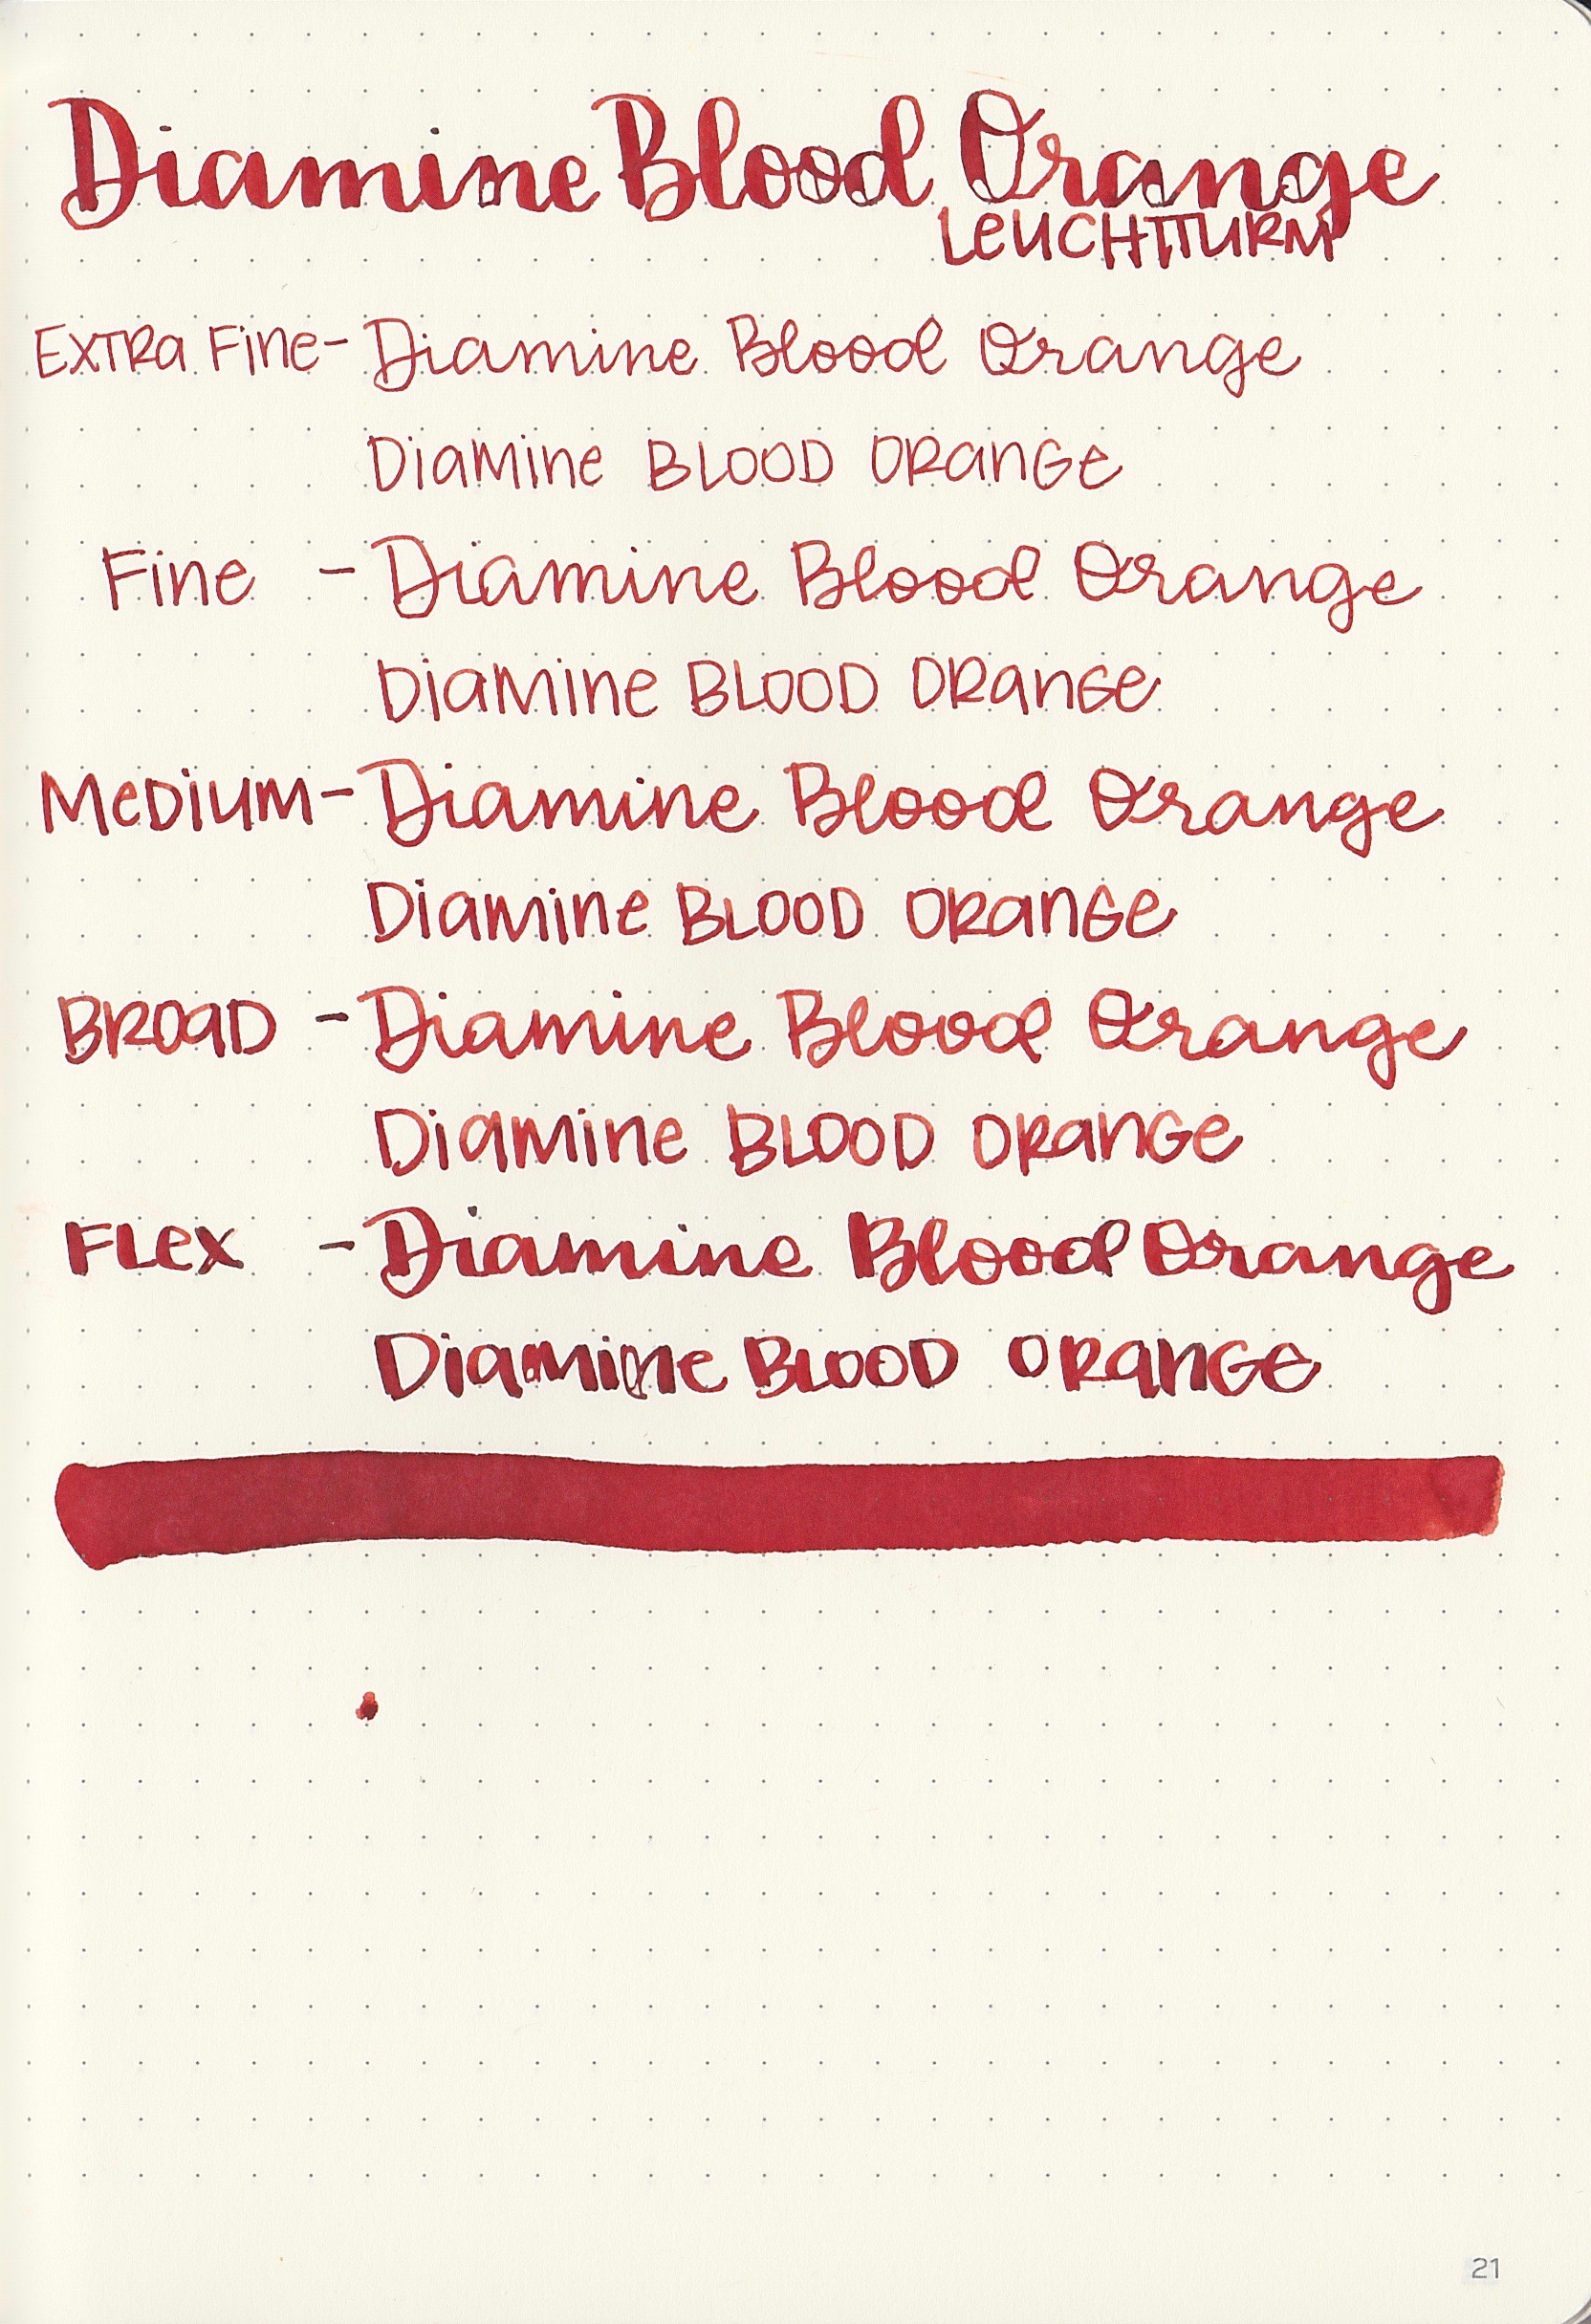 Diamine Blood Orange
LEUCHTTURM
EXTRa Fine - Diamine Blood Orange
DiaMine BLOOD ORanGe
Fine - Diamine Blood Orange
DiaMine BLOOD ORanGe
MeDiuM - Diamine Blood Orange
DiaMine BLOOD ORanGe
BROaD - Diamine Blood Orange
DiaMine BLOOD ORanGe
FLex - Diamine Blood Orange
DiaMine BLOOD ORanGe
21